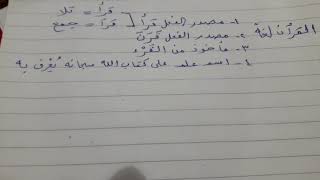 قرأ = تلا
القرآن لغة ١- مصدر الفعل قرأ قرأ = جمع
٢- مصدر الفعل قَرَنَ
٣- مأخوذ من القَرْء
٤- اسم علم على كتاب الله سبحانه يُعْرَف به